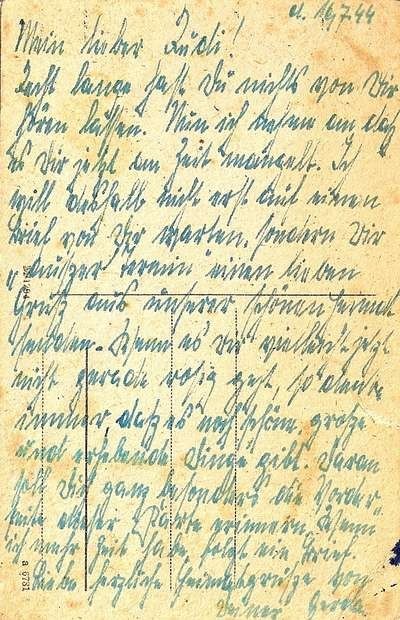 d. 16.7.44
Mein lieber Rudi!
Recht lange hast Du nichts von Dir
hören lassen. Nun ich nehme an daß
es Dir jetzt an Zeit mangelt. Ich
will deshalb nicht erst auf einen
Brief von Dir warten, sondern Dir
"außer Termin" einen lieben
Gruß aus unserer schönen Heimat
senden. Wenn es Dir vielleicht jetzt
nicht gerade rosig geht, so denke
immer, daß es noch schöne, große
und erhebende Dinge gibt. Daran
soll Dich ganz besonders die Vorder-
seite dieser Karte erinnern. Wenn
ich mehr Zeit habe, folgt ein Brief.
Liebe herzliche Heimatgrüße von
Deiner
a 6731